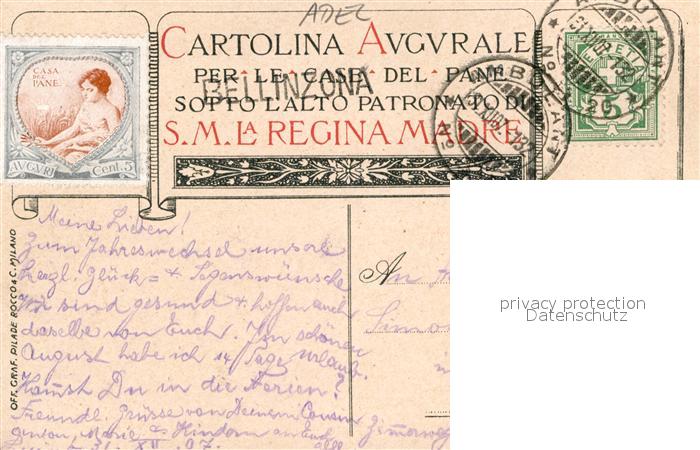 ADEL
CARTOLINA AVGVRALE
PER LE CASE DEL PANE
BELLINZONA
SOTTO L'ALTO PATRONATO DI
S. M. LA REGINA MADRE
CASA DEL PANE
AVGVRI Cent. 5
HELVETIA
AMBULANT
AMBULANT
No
25
OFF. GRAF. PILADE ROCCO & C. MILANO
Meine Lieben!
Zum Jahreswechsel unsere
herzl. Glück= & Segenswünsche
Wir sind gesund & hoffen auch
dasselbe von Euch. Im schönen
August habe ich 14 Tage Urlaub.
Kommst Du in die Ferien?
Freundl. Grüsse von Deinem Cousin
Marie & Kindern an Euch
XII 07.
An
Simon
privacy protection
Datenschutz